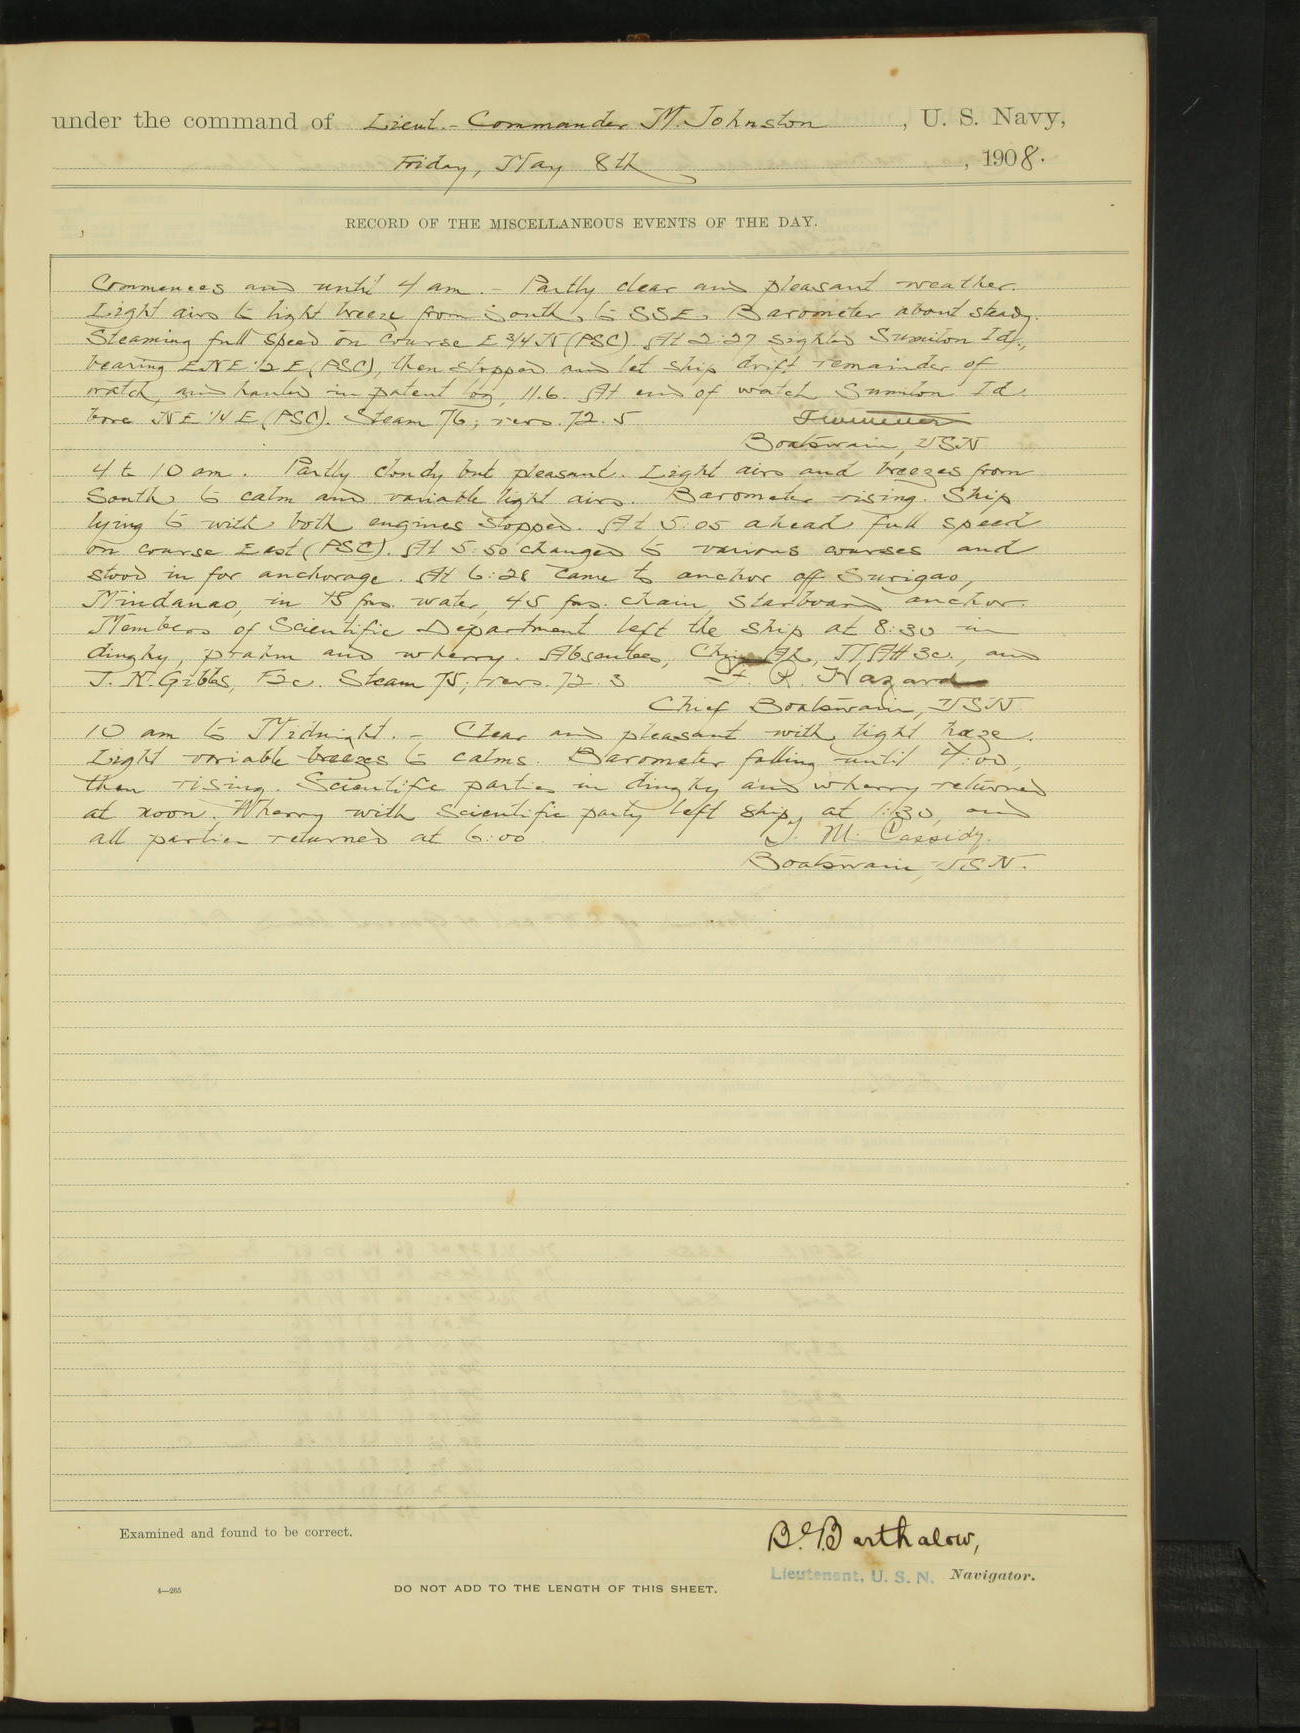 under the command of Lieut.-Commander M. Johnston, U. S. Navy,
Friday, May 8th, 1908.
RECORD OF THE MISCELLANEOUS EVENTS OF THE DAY.
Commences and until 4 am. - Partly clear and pleasant weather.
Light airs to light breeze from South to SSE. Barometer about steady.
Steaming full speed on course E 3/4 N (PSC). At 2:27 sighted Sumilon Id.,
bearing ENE 1/2 E (PSC), then stopped and let ship drift remainder of
watch, and hauled in patent log, 11.6. At end of watch Sumilon Id.
bore NE 1/4 E (PSC). Steam 76; revs. 72.5
Boatswain, USN
4 to 10 am. Partly cloudy but pleasant. Light airs and breezes from
South to calm and variable light airs. Barometer rising. Ship
lying to with both engines stopped. At 5:05 ahead full speed
on course East (PSC). At 5:50 changed to various courses and
stood in for anchorage. At 6:28 came to anchor off Surigao,
Mindanao, in 18 fms. water, 45 fms. chain, starboard anchor.
Members of Scientific Department left the ship at 8:30 in
dinghy, prahm and wherry. Absentees, Ah, MAtt 3c., and
J. K. Gibbs, F2c. Steam 75; revs. 72.3 F. R. Hazard
Chief Boatswain, USN
10 am to Midnight. - Clear and pleasant with light haze.
Light variable breezes to calms. Barometer falling until 4:00,
then rising. Scientific parties in dinghy and wherry returned
at noon. Wherry with Scientific party left ship at 1:30, and
all parties returned at 6:00 J. M. Cassidy.
Boatswain, USN.
Examined and found to be correct.
B. B. Barthalow,
Lieutenant, U. S. N. Navigator.
4—265
DO NOT ADD TO THE LENGTH OF THIS SHEET.